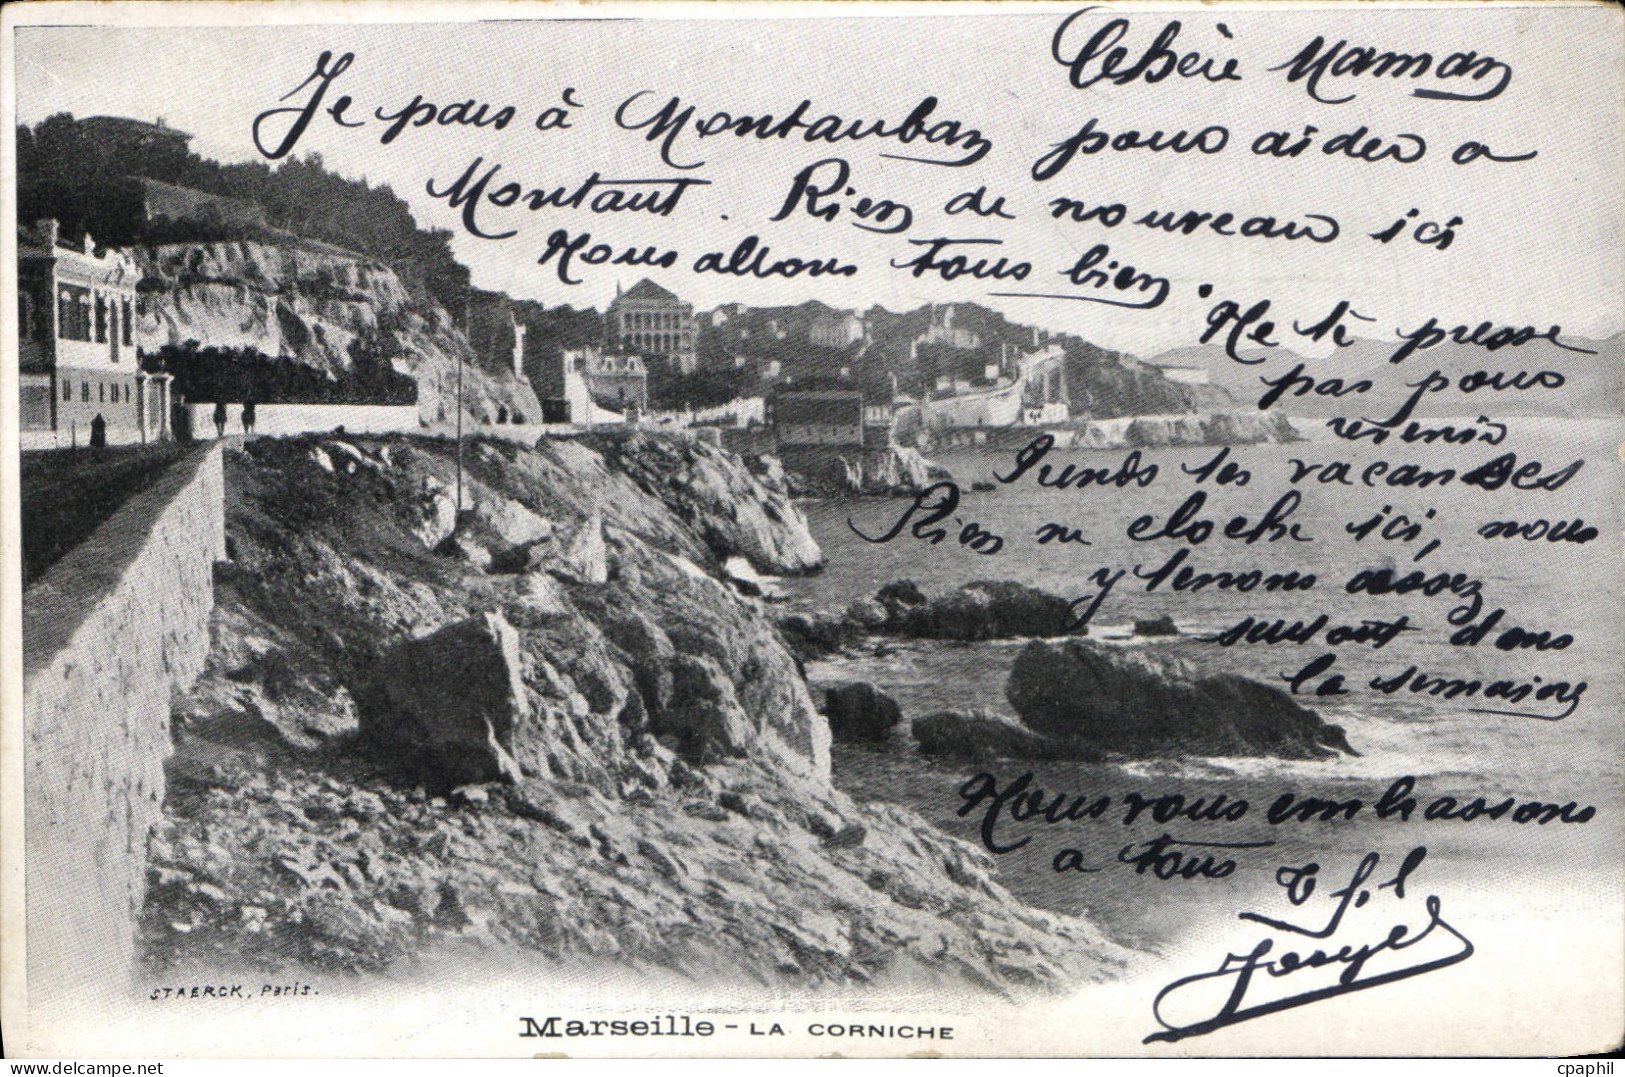 Chère Maman
Je pars à Montauban pour aider a
Montaut. Rien de nouveau ici
Nous allons tous bien.
Ne te presse
pas pour
revenir
Prends tes vacances
Rien ne cloche ici, nous
y tenons assez
surtout dans
la semaine
Nous vous embrassons
a tous
STAERCK, Paris.
Marseille - LA CORNICHE
cpaphil